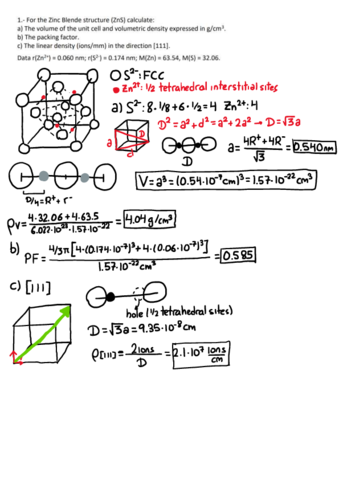 1.- For the Zinc Blende structure (ZnS) calculate:
a) The volume of the unit cell and volumetric density expressed in g/cm³.
b) The packing factor.
c) The linear density (ions/mm) in the direction [111].
Data r(Zn²⁺) = 0.060 nm; r(S²⁻) = 0.174 nm; M(Zn) = 63.54, M(S) = 32.06.
O S²⁻: FCC
• Zn²⁺: 1/2 tetrahedral interstitial sites
a) S²⁻: 8·1/8 + 6·1/2 = 4 Zn²⁺: 4
D² = a² + d² = a² + 2a² → D = √3a
a d D
D
a = 4R⁺ + 4R⁻ / √3 = 0.540nm
V = a³ = (0.54·10⁻⁷cm)³ = 1.57·10⁻²² cm³
D/4 = R⁺ + r⁻
ρv = 4·32.06 + 4·63.5 / 6.022·10²³·1.57·10⁻²² = 4.04 g/cm³
b)
PF = 4/3π[4·(0.174·10⁻⁷)³ + 4·(0.06·10⁻⁷)³] / 1.57·10⁻²² cm³ = 0.585
c) [111]
hole (1/2 tetrahedral sites)
D = √3a = 9.35·10⁻⁸ cm
ρ[111] = 2 ions / D = 2.1·10⁷ ions/cm